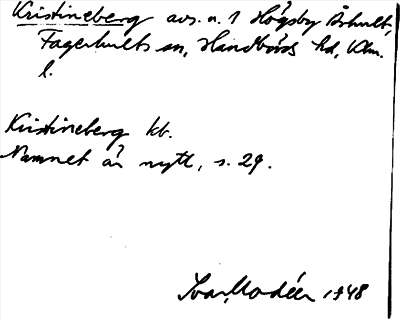 Kristineberg avs. n. 1 Högsby Århult,
Fagerhults sn, Handbörds hd, Klm.
l.
Kristineberg kb.
Namnet är nytt, s. 29.
Ivar Modéer 1948